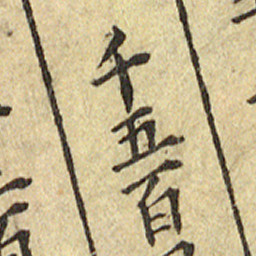 千五百